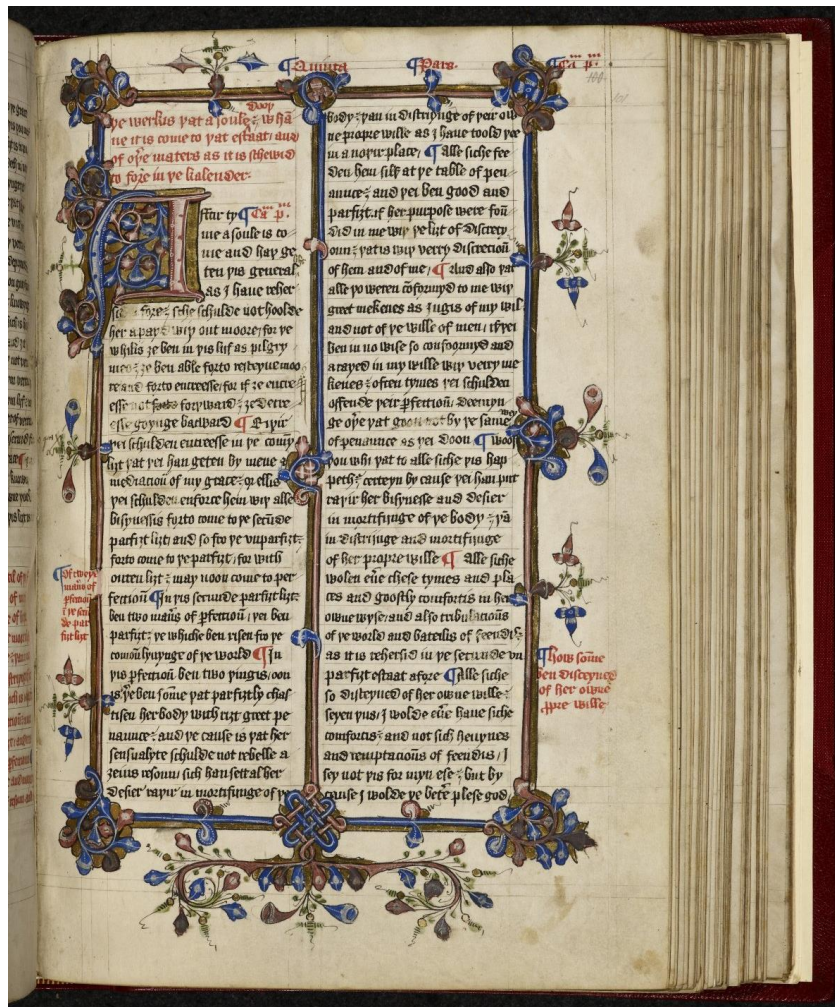 Quinta Pars. Cam pm
þe werkis þat a soule dooþ whā
ne it is come to þat estaat, and
of oþe maters as it is schewid
to fore in þe kalender.
Aftir ty Cam pm.
me a soule is co
me and haþ ge
ten þis general
as I haue reher
sid fore, sche schulde not hoolde
her apayd wiþ out moore, for þe
whilis ȝe ben in þis lijf as pilgry
mes, ȝe ben able forto resceyue moo
re and forto encreesse, for if ȝe encre
esse not forward, ȝe decre
esse goynge bacward ¶ Riȝtt
þei schulden encreesse in þe comyn
liȝt þat þei han geten by mene
mediacioun of my grace, or ellis
þei schulden enforce hem wiþ alle
bisynessis forto come to þe secūde
parfiȝt liȝt, and so fro þe vnparfiȝt
forto come to þe parfiȝt, for with
outen liȝt may noon come to per
feccioun ¶ In þis secunde parfiȝt liȝt
ben two maūs of pfectioū, þei ben
parfiȝt þe whiche ben risen fro þe
comoū lyuynge of þe world ¶ In
þis pfectioū ben two þingis, oon
is þe ben some þat parfiȝtly chas
tisen her body with riȝt greet pe
naunce, and þe cause is þat her
sensualyte schulde not rebelle a
ȝeins resoun, sich han sett al her
desier raþir in mortifijnge of þe
body, þan in distriynge of þeir ow
ne propre wille as I haue toold þee
in anoþir place, ¶ Alle siche fee
den hem silf at þe table of pen
aunce, and þei ben good and
parfiȝt if her purpose were foū
did in me wiþ þe liȝt of discrecy
oun, þat is wiþ verry discrecioū
of hem and of me, ¶ And also þat
alle þo weren cōformyd to me wiþ
greet mekenes as iugis of my wil
and not of þe wille of men, if þei
ben in no wise so confoormyd and
arayed in my wille wiþ verry me
kenes, often tymes þei schulden
offende þeir pfectioū, deemyn
ge oþe þat goon not by þe same wey
of penaunce as þei doon ¶ Woost
þou whi þat to alle siche þis hap
peth, certeyn by cause þei han put
raþir her bisynesse and desier
in mortifijnge of þe body, þā
in distrijnge and mortifijnge
of her propre wille ¶ Alle siche
wolen eūe chese tymes and pla
ces and goostly coumfortis in her
owne wyse, and also tribulacious
of þe world and bateilis of feendis,
as it is rehersid in þe secunde vn
parfiȝt estaat afore ¶ Alle siche
so disceyued of her owne wille
seyen þus, I wolde eūe haue siche
coumfortis, and not sich heuynes
and temptacioūs of feendis, I
sey not þis for myn ese, but by
cause I wolde þe bete plese god
¶ Of tweye
maūs of
pfectioū
i þe secū
de par
fiȝt liȝt
¶ How sōme
ben disceyued
of her owne
ppre wille